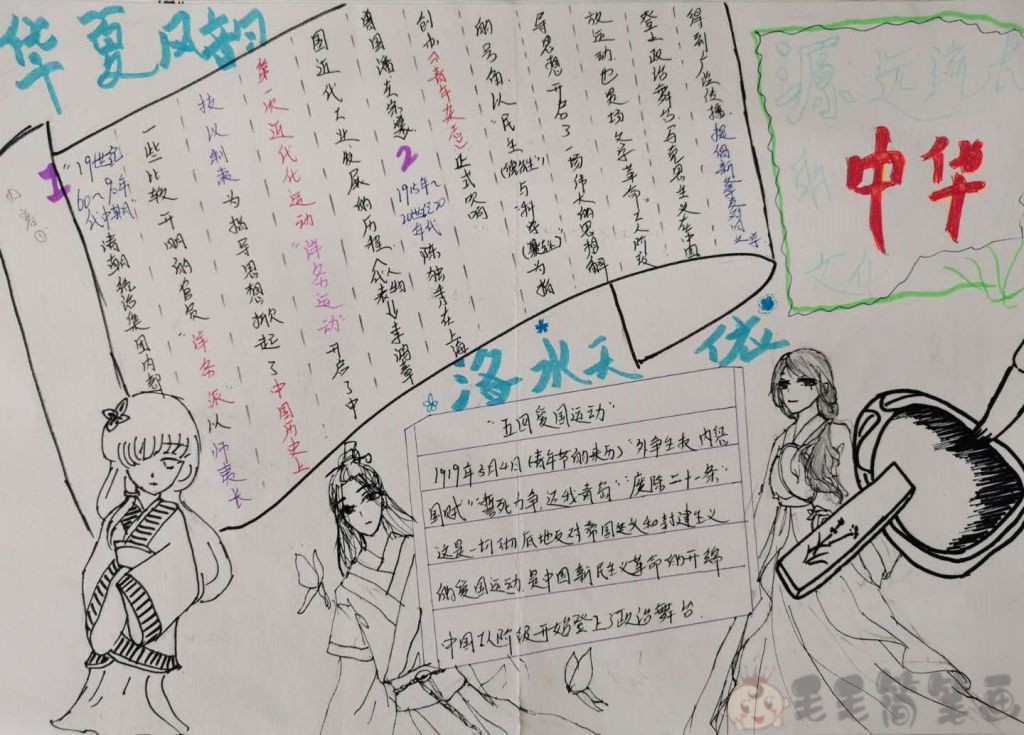 华夏风韵
1
"19世纪
60～90年
代中期"
清朝统治集团内部
一些比较开明的官员"洋务派"以师夷长
技以制夷为指导思想掀起了中国历史上
第一次近代化运动"洋务运动"开启了中
国近代工业发展的历程(代表人物)李鸿章
曾国藩左宗棠
2
1915年～
20世纪20
年代
陈独秀在上海
创办《青年杂志》正式吹响
的号角以"民主(德先生)"与"科学(赛先生)"为指
导思想开启了一场伟大的思想解
放运动也是场文学革命工人阶级
登上政治舞台马克思主义在中国
得到广泛传播提倡新文学反对旧文学
内容①
源远流长
中华
文化
洛水天依
"五四爱国运动"
1919年5月4日(青年节的来历)"外争主权 内惩
国贼""誓死力争还我青岛""废除二十一条"
这是一切彻底地反对帝国主义和封建主义
的爱国运动是中国新民主义革命的开端
中国工人阶级开始登上了政治舞台
毛毛简笔画